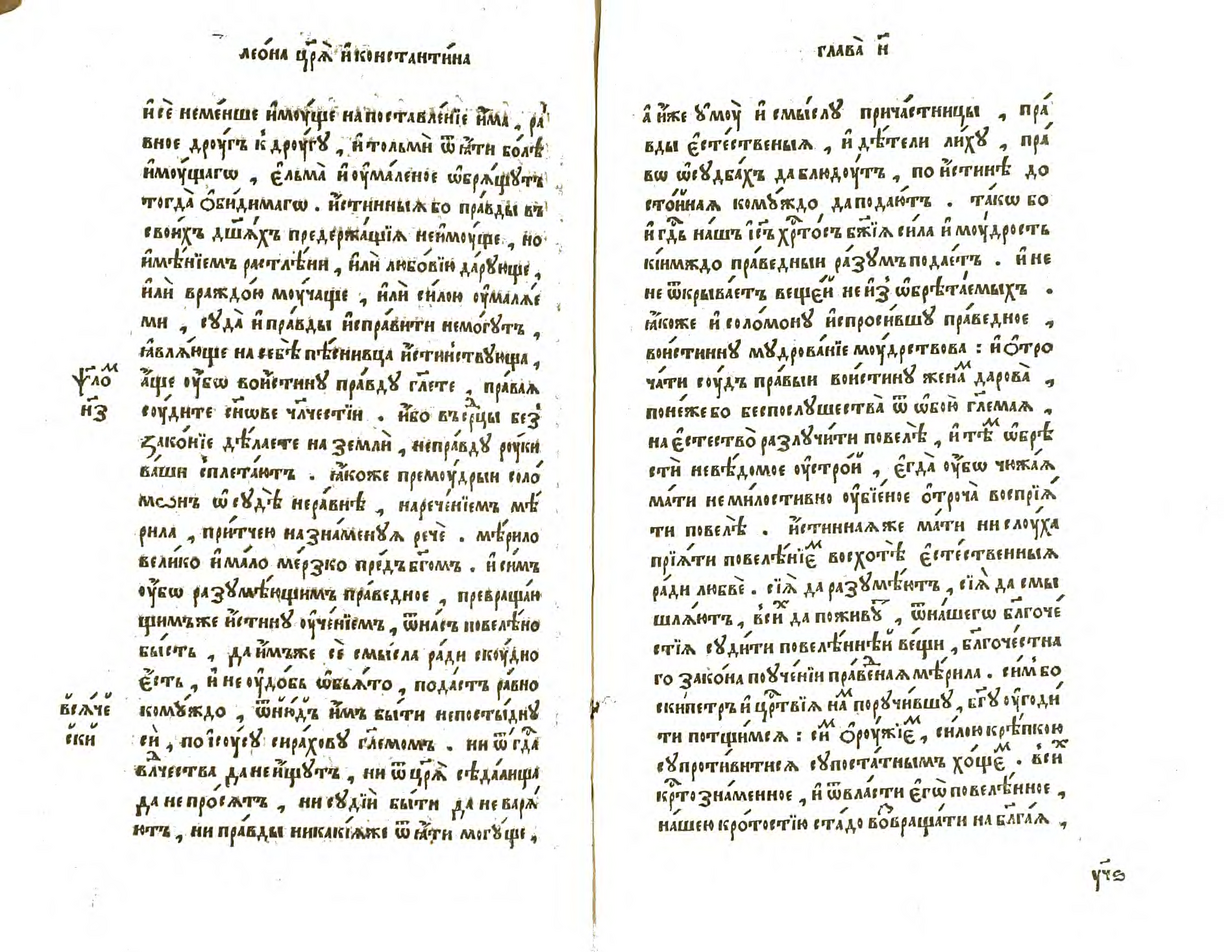 леѡ́на цр҃ѧ̀ и҆ константи́на
и҆ сѐ неме́нше и҆моу́ще на поставле́нїе и҆́ма , ра́
вное дроу́гъ к̾ дроу́гꙋ , и҆ тольмѝ ѿꙗ́ти бо́лѣ
и҆моу́щагѡ , є҆льма̀ и҆ оу҆ма́леное ѡ҆брѧ́щꙋтъ
тогда̀ ѻ҆би́димагѡ . и҆́стинныѧ бо пра́вды въ
свои́хъ дш҃а́хъ предержа́щїѧ неи҆моу́ще , но
и҆мѣ́нїемъ растлѣ́ни , и҆лѝ любо́вїю да́рꙋюще ,
и҆лѝ враждо́ю моу́чаще , и҆лѝ си́лою оу҆малѧ́е
ми , сꙋда̀ и҆ пра́вды и҆спра́вити немо́гꙋтъ ,
ꙗ҆влѧ́юще на себѣ̀ пѣ́снивца и҆́стинствꙋюща ,
а҆́ще оу҆́бѡ вои́стинꙋ пра́вдꙋ гл҃ете , пра́ваѧ
соу́дите сн҃ове чл҃честїи . и҆́бо въ срⷣцы без̾
зако́нїе дѣ́лаете на землѝ , непра́вдꙋ роу́ки
ва́ши сплета́ютъ . ꙗ҆́коже премоу́дрыи соло
мѡ́нъ ѡ҆ сꙋдѣ̀ нера́внѣ , нарече́нїемъ мѣ́
рила , при́тчею назна́менꙋѧ речѐ . мѣ́рило
вели́ко и҆ ма́ло ме́рзко предъ бг҃омъ . и҆ си́мъ
оу҆́бѡ разꙋмѣ́ющимъ пра́ведное , превраща́ю
щимъже и҆́стинꙋ оу҆че́нїемъ , ѿ на́съ повелѣ́но
бы́сть , да и҆́мъже сѐ смы́сла ра́ди скоу́дно
є҆́сть , и҆ не оу҆до́бь ѡ҆бъѧ́то , пода́стъ ра́вно
комꙋ́ждо , ѿню́дъ и҆̀мъ бы́ти непосты́днꙋ
сѝ , по і҆соу́сꙋ сира́ховꙋ гл҃емомъ . ни ѿ гдⷭ҇а
влⷣчества да не и҆́щꙋтъ , ни ѿ цр҃ѧ̀ сѣда́лища
да не про́сѧтъ , ни сꙋдїи́ бы́ти да не варѧ́
ютъ , ни пра́вды никакі́ѧже ѿꙗ́ти могꙋ́ще ,
ѱаломⷨ
н҃з
всѧ́че
ски
глава̀ и҃
а҆ и҆́же оу҆моу̀ и҆ смы́слꙋ прича́стницы , пра́
вды є҆сте́ственыѧ , и҆ дѣ́тели ли́хꙋ , пра́
вѡ ѡ҆ сꙋдба́хъ да блюдоу́тъ , по и҆́стинѣ до
сто́йнаѧ комꙋ́ждо да подаю́тъ . та́кѡ бо
и҆ гдⷭ҇ь на́шъ і҆с҃ъ хрⷭ҇то́съ бж҃їѧ си́ла и҆ моу́дрость
кїи́мждо пра́ведныи ра́зꙋмъ подае́тъ . и҆ не
не ѿкрыва́етъ веще́й не и҆з̾ѡбрѣта́емыхъ .
ꙗ҆́коже и҆ соломо́нꙋ и҆спроси́вшꙋ пра́ведное ,
вои́стиннꙋ мꙋдрова́нїе моу́дрствова : и҆ ѻ҆тро
ча́ти соу́дъ пра́выи вои́стинꙋ жена́ⷨ дарова̀ ,
поне́же бо беспослꙋ́шества ѿ ѡ҆бою̀ гл҃емаѧ ,
на є҆стество̀ разлꙋчи́ти повелѣ̀ , и҆ тѣ́ⷨ ѡ҆брѣ
стѝ невѣ́домое оу҆стро́й , є҆гда̀ оу҆́бѡ чюжа́ѧ
ма́ти неми́лостивно оу҆бїе́ное ѻ҆троча̀ воспрїѧ́
ти повелѣ̀ . и҆́стиннаѧже ма́ти ни слоу́ха
прїѧ́ти повелѣ́нїеⷨ восхотѣ̀ є҆сте́ственныѧ
ра́ди любвѐ . сїѧ̀ да разꙋмѣ́ютъ , сїѧ̀ да смы
шлѧ́ютъ , всѝⷯ да поживꙋ́ , ѿ на́шегѡ бл҃гоче́
стїѧ сꙋди́ти повелѣ́ннїи ве́щи , бл҃гоче́стна
го зако́на поꙋче́нїи пра́веⷣнаѧ мѣ́рила . си́мбо
ски́петръ и҆ црⷭ҇твїѧ на́ⷨ порꙋчи́вшꙋ , бг҃ꙋ оу҆годи́
ти потщи́мсѧ : си́ⷨ ѻ҆роу́жїеⷨ , си́лою крѣ́пкою
сꙋпроти́витисѧ сꙋпоста́тнымъ хо́щеⷨ . всѝⷯ
крⷭ҇тозна́менное , и҆ ѿ вла́сти є҆гѡ̀ повелѣ́нное ,
на́шею кро́тостїю ста́до во́звраща́ти на бл҃га́ѧ ,
ѵ҃ч҃ѕ